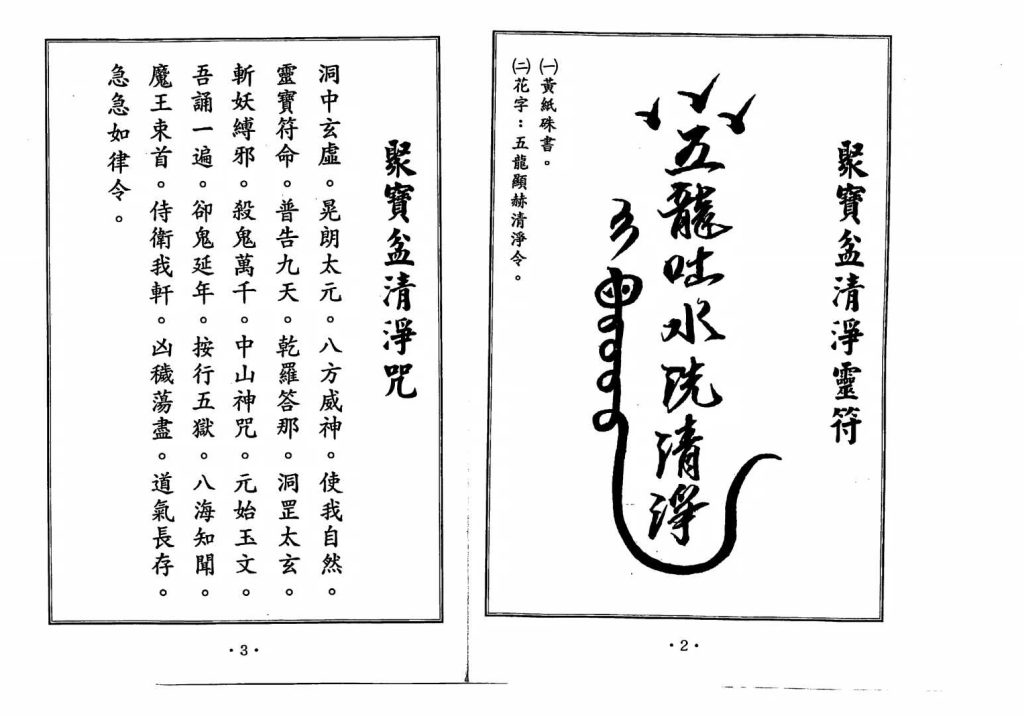 聚寶盆清淨靈符
五龍吐水洗清淨
㈠黃紙硃書。
㈡花字：五龍顯赫清淨令。
·2·
聚寶盆清淨咒
洞中玄虛。晃朗太元。八方威神。使我自然。
靈寶符命。普告九天。乾羅答那。洞罡太玄。
斬妖縛邪。殺鬼萬千。中山神咒。元始玉文。
吾誦一遍。卻鬼延年。按行五獄。八海知聞。
魔王束首。侍衛我軒。凶穢蕩盡。道氣長存。
急急如律令。
·3·